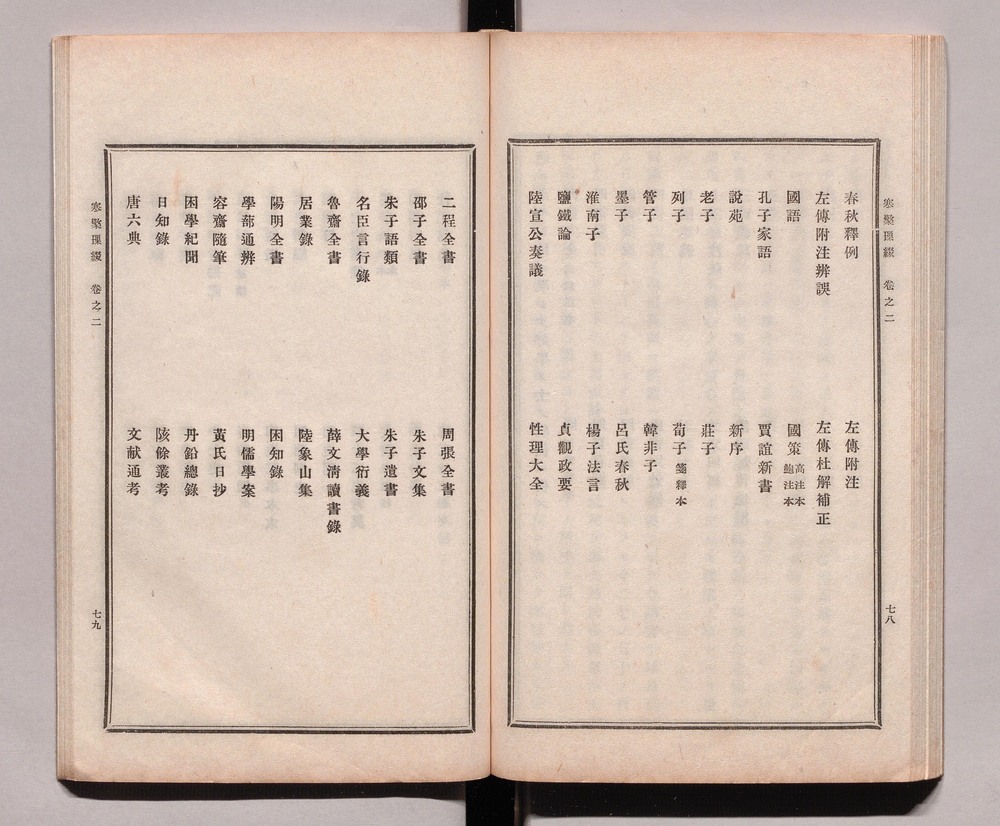 寒檠璅綴　卷之二
七八
春秋釋例　左傳附注
左傳附注辨誤　左傳杜解補正
國語　國策 高注本 鮑注本
孔子家語　賈誼新書
說苑　新序
老子　莊子
列子　荀子 箋釋本
管子　韓非子
墨子　呂氏春秋
淮南子　楊子法言
鹽鐵論　貞觀政要
陸宣公奏議　性理大全
二程全書　周張全書
邵子全書　朱子文集
朱子語類　朱子遺書
名臣言行錄　大學衍義
魯齋全書　薛文淸讀書錄
居業錄　陸象山集
陽明全書　困知錄
學蔀通辨　明儒學案
容齋隨筆　黃氏日抄
困學紀聞　丹鉛總錄
日知錄　陔餘叢考
唐六典　文献通考
寒檠璅綴　卷之二
七九